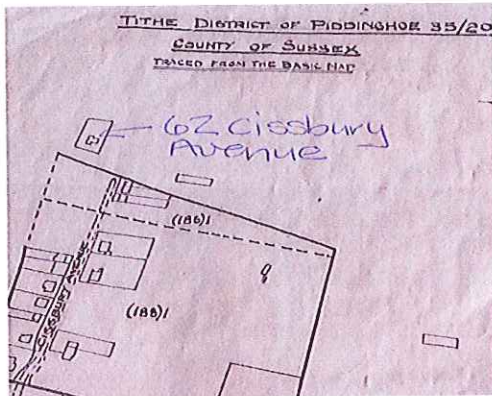 TITHE DISTRICT OF PIDDINGHOE 35/20
COUNTY OF SUSSEX
TRACED FROM THE BASIC MAP
62 Cissbury
Avenue
(186)1
(188)1
CISSBURY AVENUE